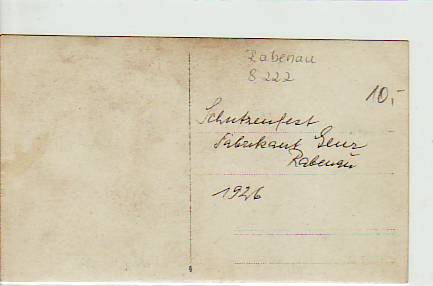 Rabenau
8222
10,-
Schützenfest
Fabrikant Genz
Rabenau
1926